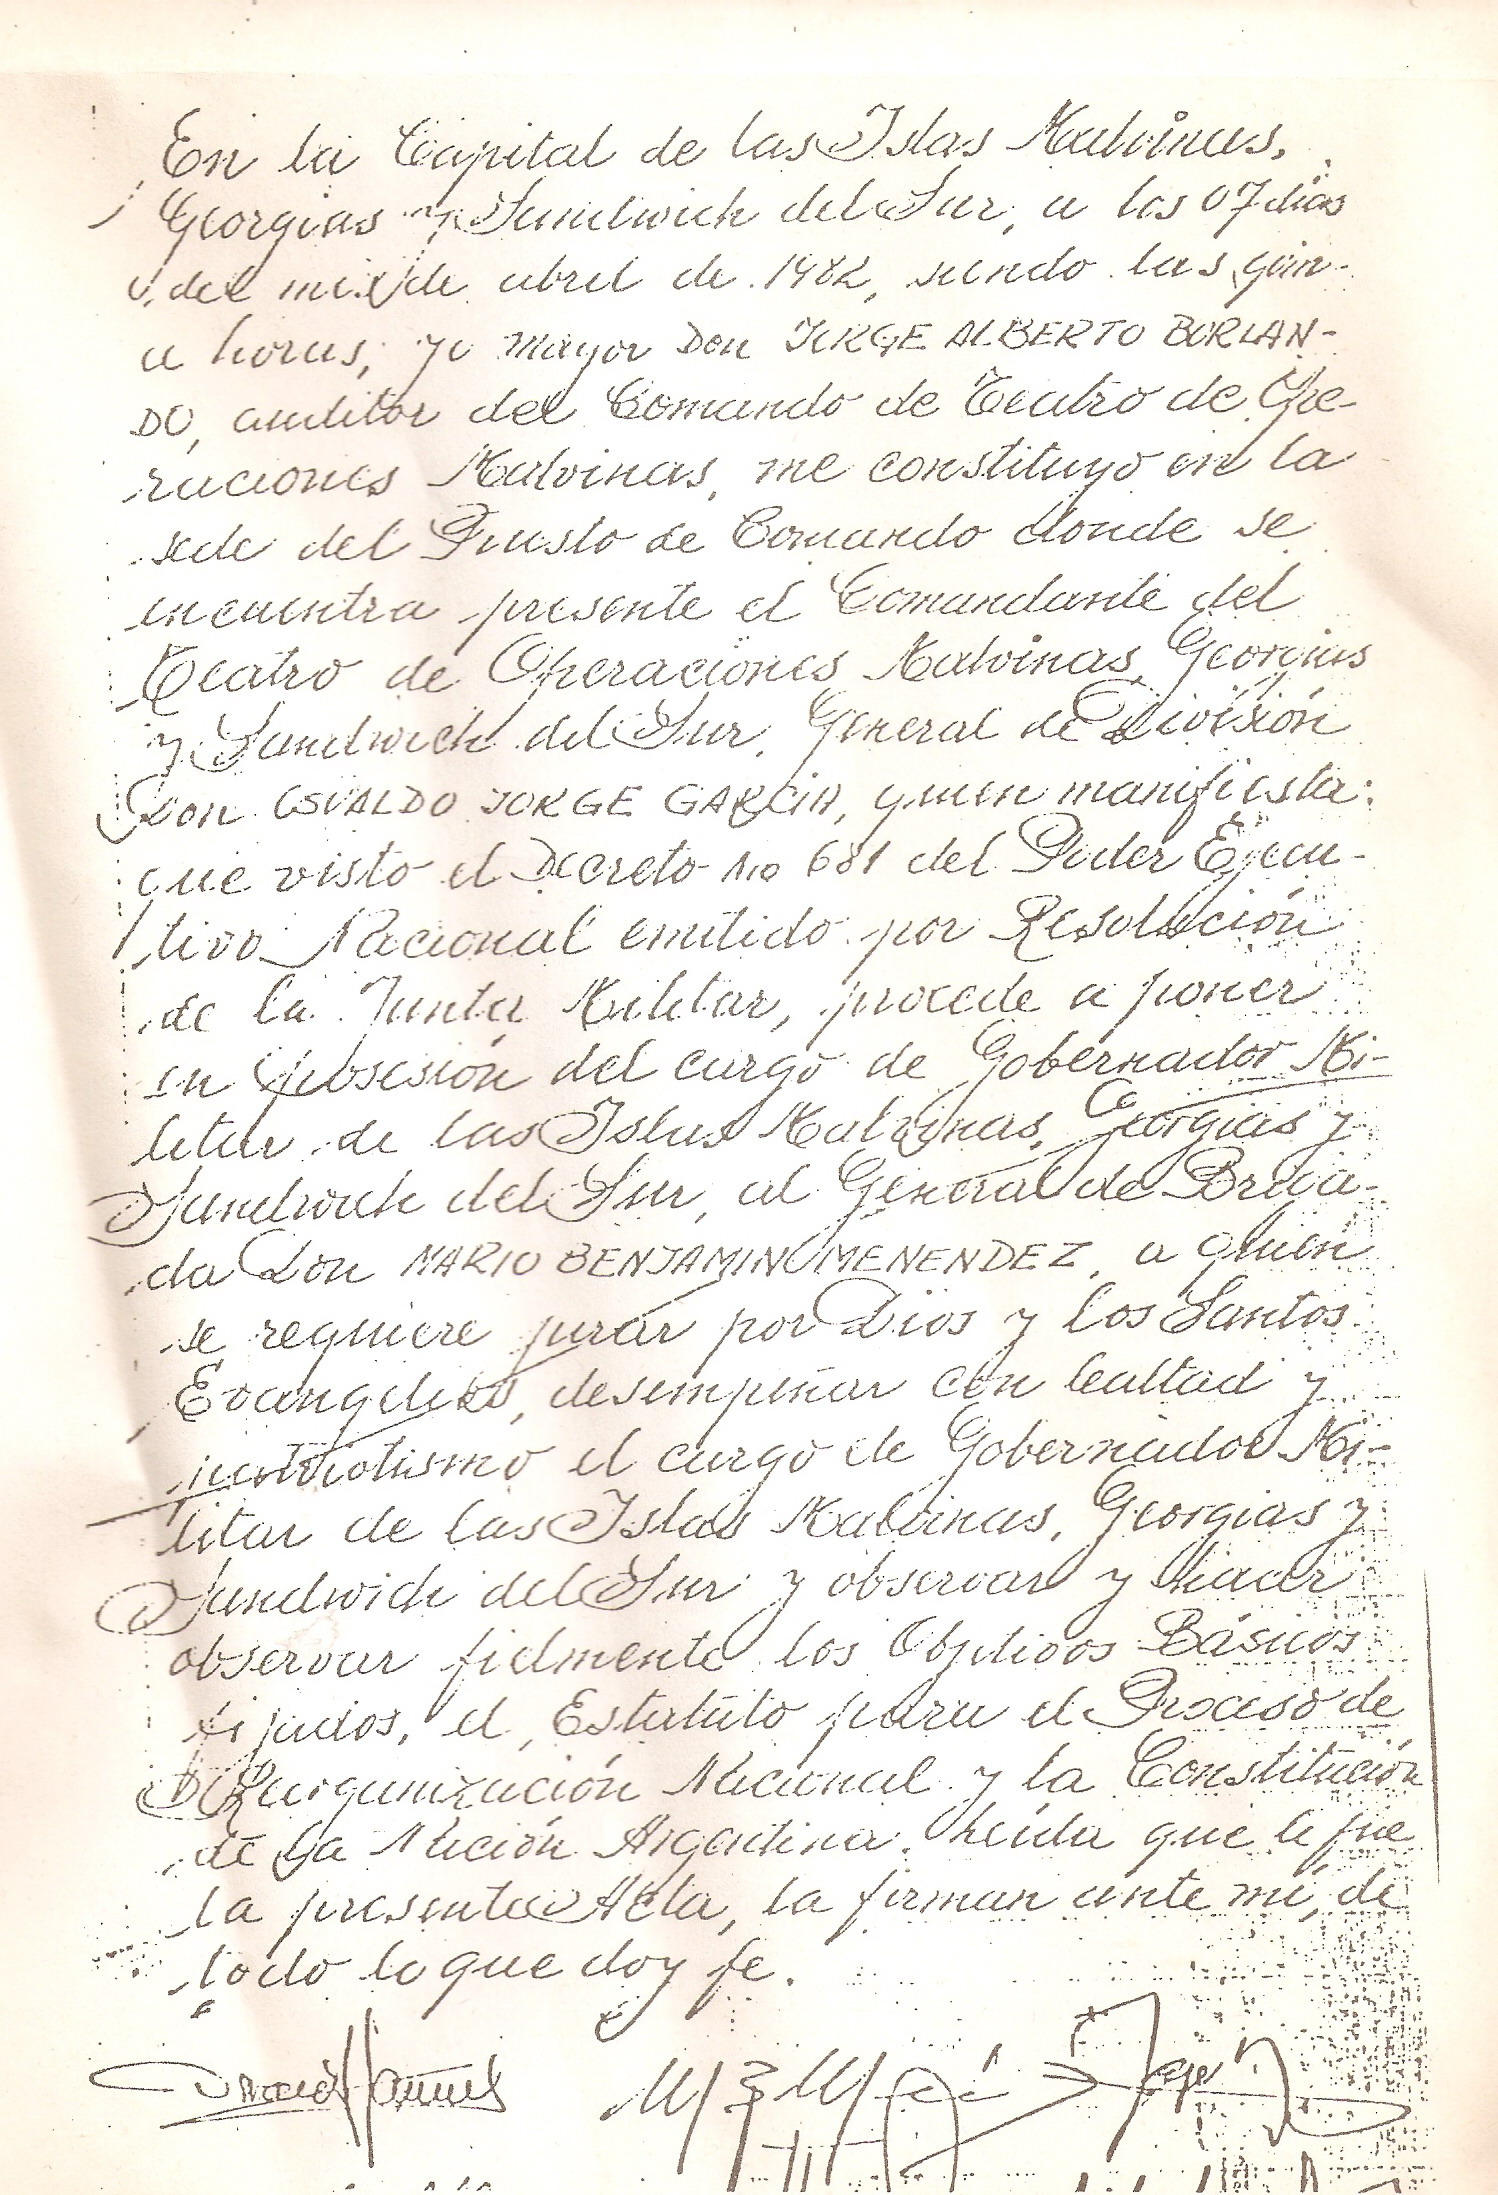 En la Capital de las Islas Malvinas,
Georgias y Sandwich del Sur, a los 07 días
del mes de abril de 1982, siendo las
horas, yo Mayor Don JORGE ALBERTO BORLAN-
DO, auditor del Comando de Teatro de Ope-
raciones Malvinas, me constituyo en la
sede del Puesto de Comando donde se
encuentra presente el Comandante del
Teatro de Operaciones Malvinas, Georgias
y Sandwich del Sur, General de División
Don OSVALDO JORGE GARCIA, quien manifiesta:
que visto el Decreto No 681 del Poder Ejecu-
tivo Nacional emitido por Resolución
de la Junta Militar, procede a poner
en posesión del cargo de Gobernador Mi-
litar de las Islas Malvinas, Georgias y
Sandwich del Sur, al General de Briga-
da Don MARIO BENJAMIN MENENDEZ, a quien
se requiere jurar por Dios y los Santos
Evangelios, desempeñar con lealtad y
patriotismo el cargo de Gobernador Mi-
litar de las Islas Malvinas, Georgias y
Sandwich del Sur y observar y hacer
observar fielmente los Objetivos Básicos
fijados, el Estatuto para el Proceso de
Reorganización Nacional y la Constitución
de la Nación Argentina. Leída que le fue
la presente Acta, la firman ante mí, de
todo lo que doy fe.